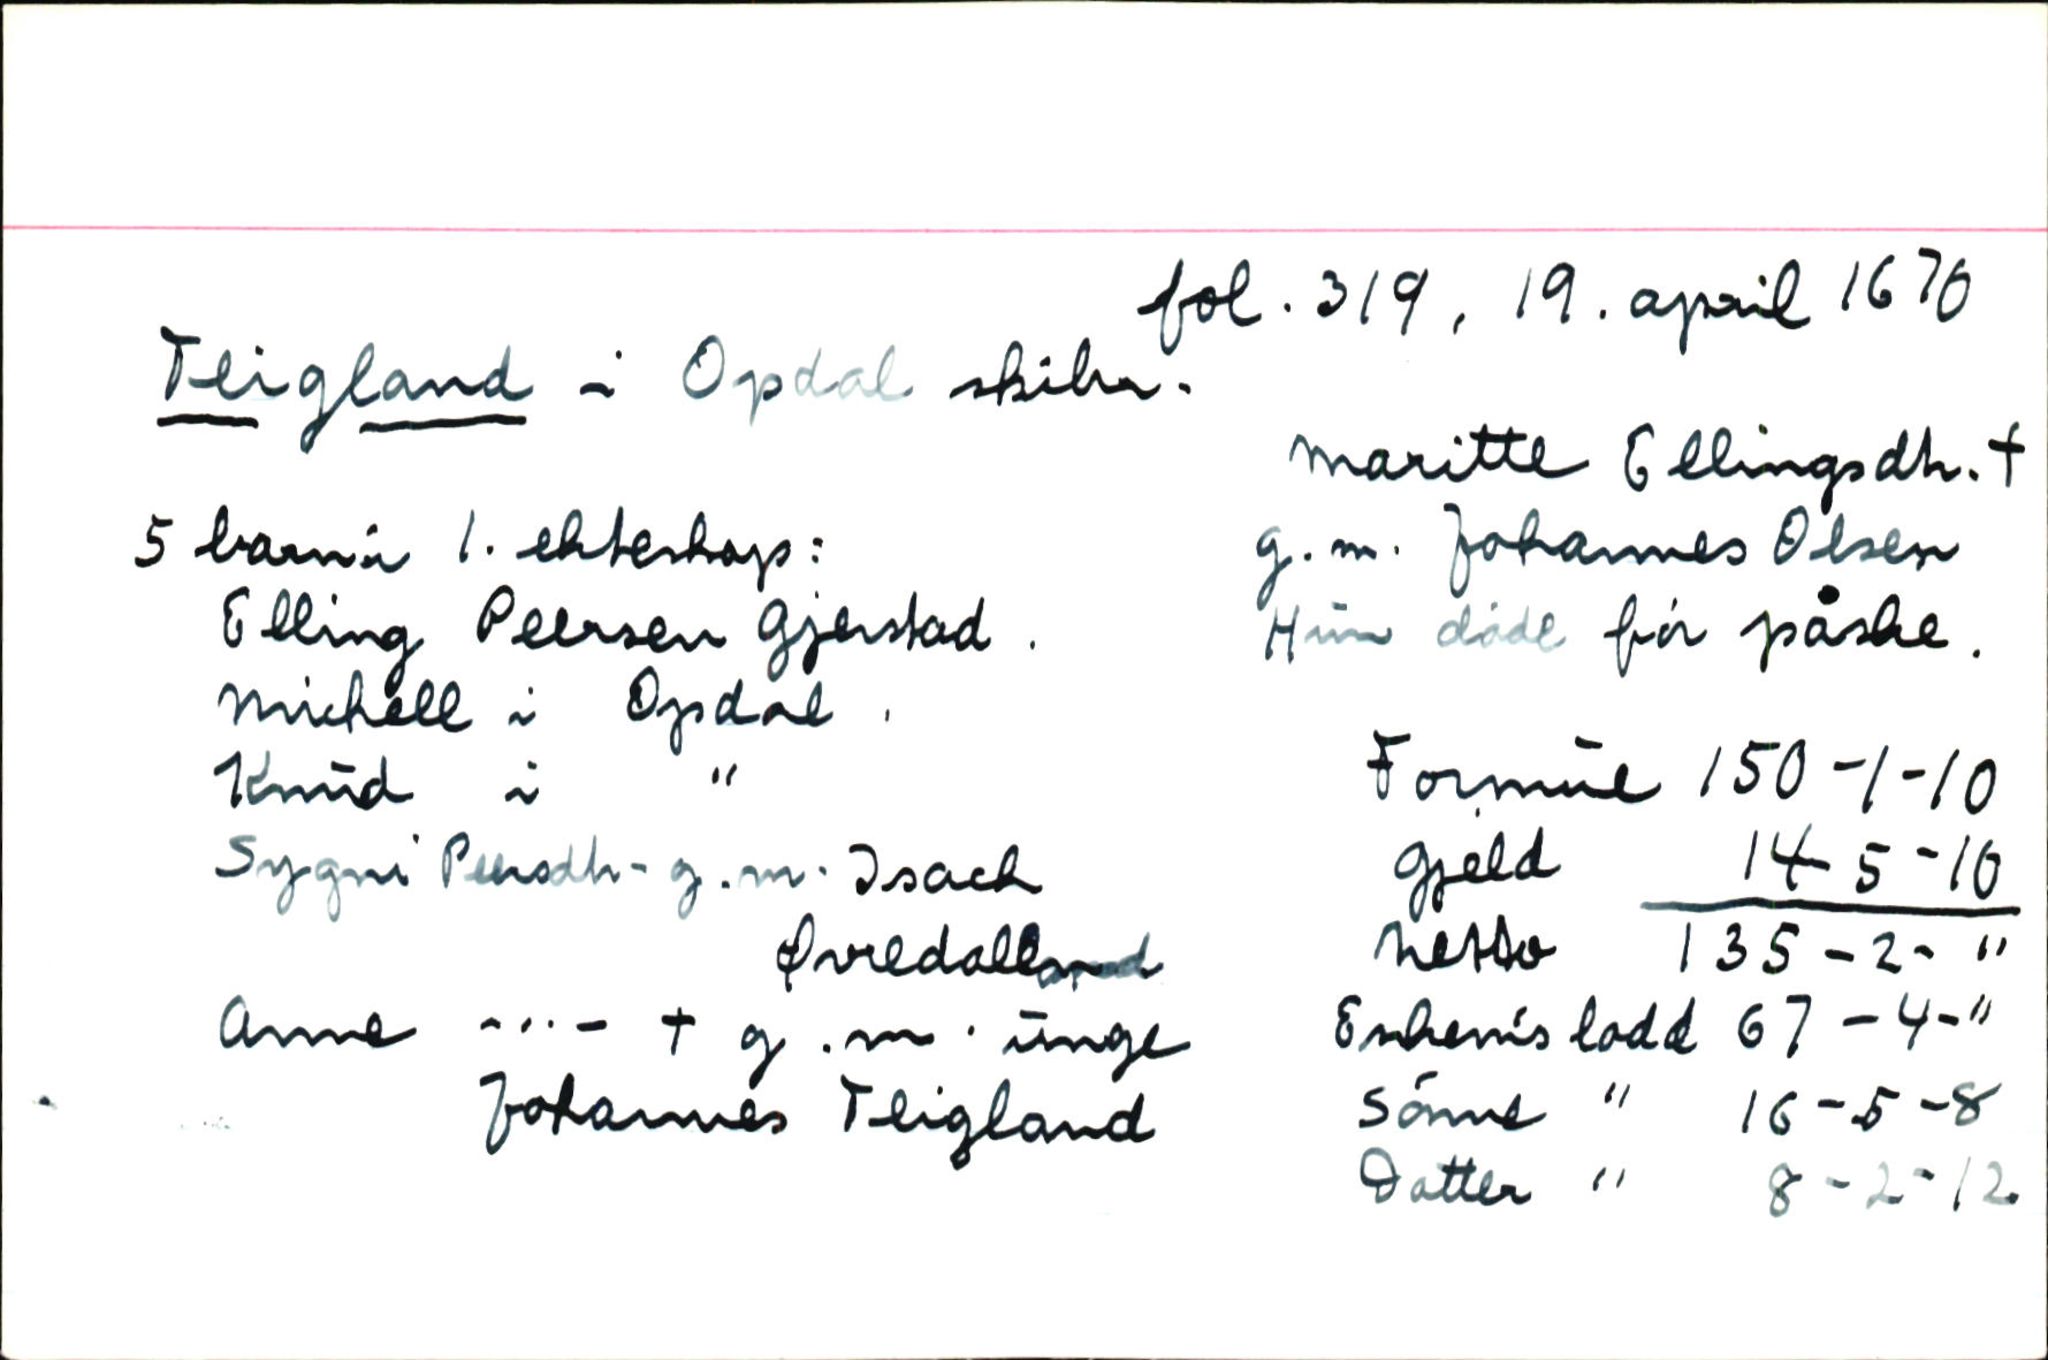 fol. 319, 19. april 1670
Teigland i Opdal skibr.
Maritte Ellingsdtr. †
g.m. Johannes Olsen
Hun döde för påske.
5 barn i 1. ekteskap:
Elling Peersen Gjerstad.
Michell i Opdal.
Knud i "
Sygni Peersdtr. g.m. Isach
Øvredall
Anne -..- † g.m. unge
Johannes Teigland
Formue 150-1-10
Gjeld 14-5-10
Netto 135-2-"
Enkem's lodd 67-4-"
Sönne " 16-5-8
Datter " 8-2-12